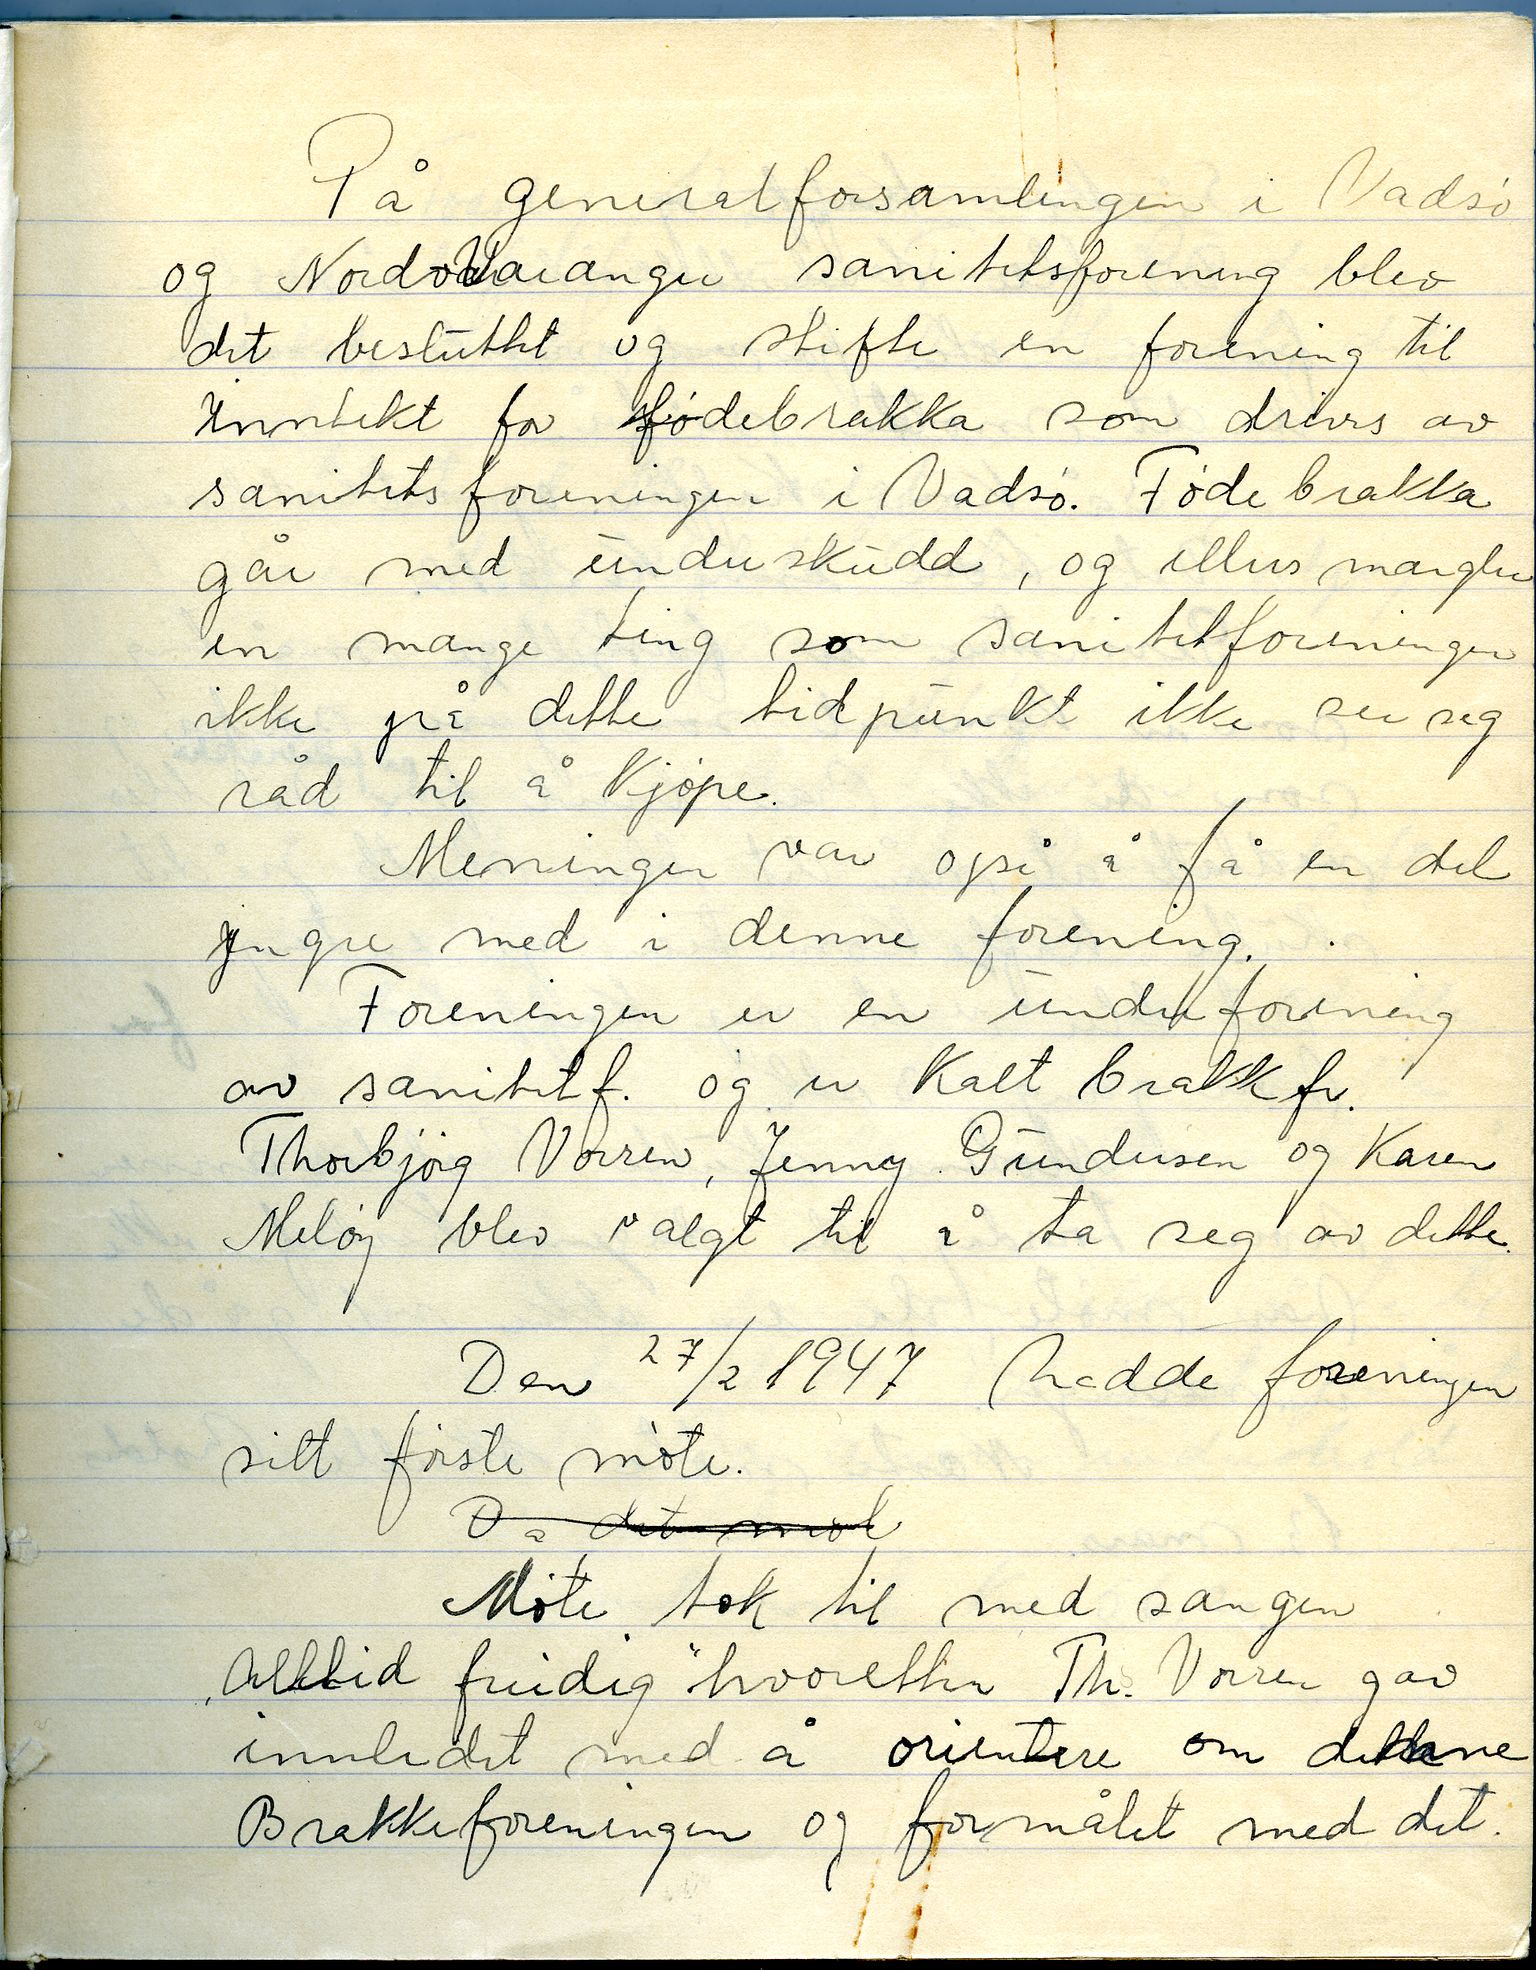 På generalforsamlingen i Vadsø
og Nord-Varanger sanitetsforening blev
det besluttet og stifte en forening til
inntekt for fødebrakka som drives av
sanitetsforeningen i Vadsø. Fødebrakka
går med underskudd, og ellers mangler
en mange ting som sanitetforeningen
ikke på dette tidpunkt ikke ser seg
råd til å kjøpe.
Meningen var også å få en del
yngre med i denne forening.
Foreningen er en underforening
av sanitetf. og er kalt brakkfr.
Thorbjørg Vorren, Jenny Gundersen og Karen
Meløy blev valgt til å ta seg av dette.
Den 27/2 1947 hadde foreningen
sitt første møte.
Da det
Møte tok til med sangen
„Alltid freidig" hvoretter Th. Vorren gav
innledet med å orientere om denne
Brakkeforeningen og formålet med det.